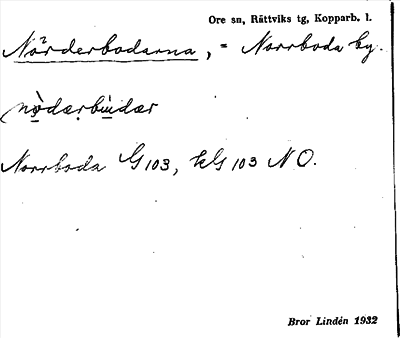 Ore sn, Rättviks tg, Kopparb. l.
Nörderbodarna, = Norrboda by.
nọ̀dærbùdær
Norrboda G 103, kG 103 NO.
Bror Lindén 1932